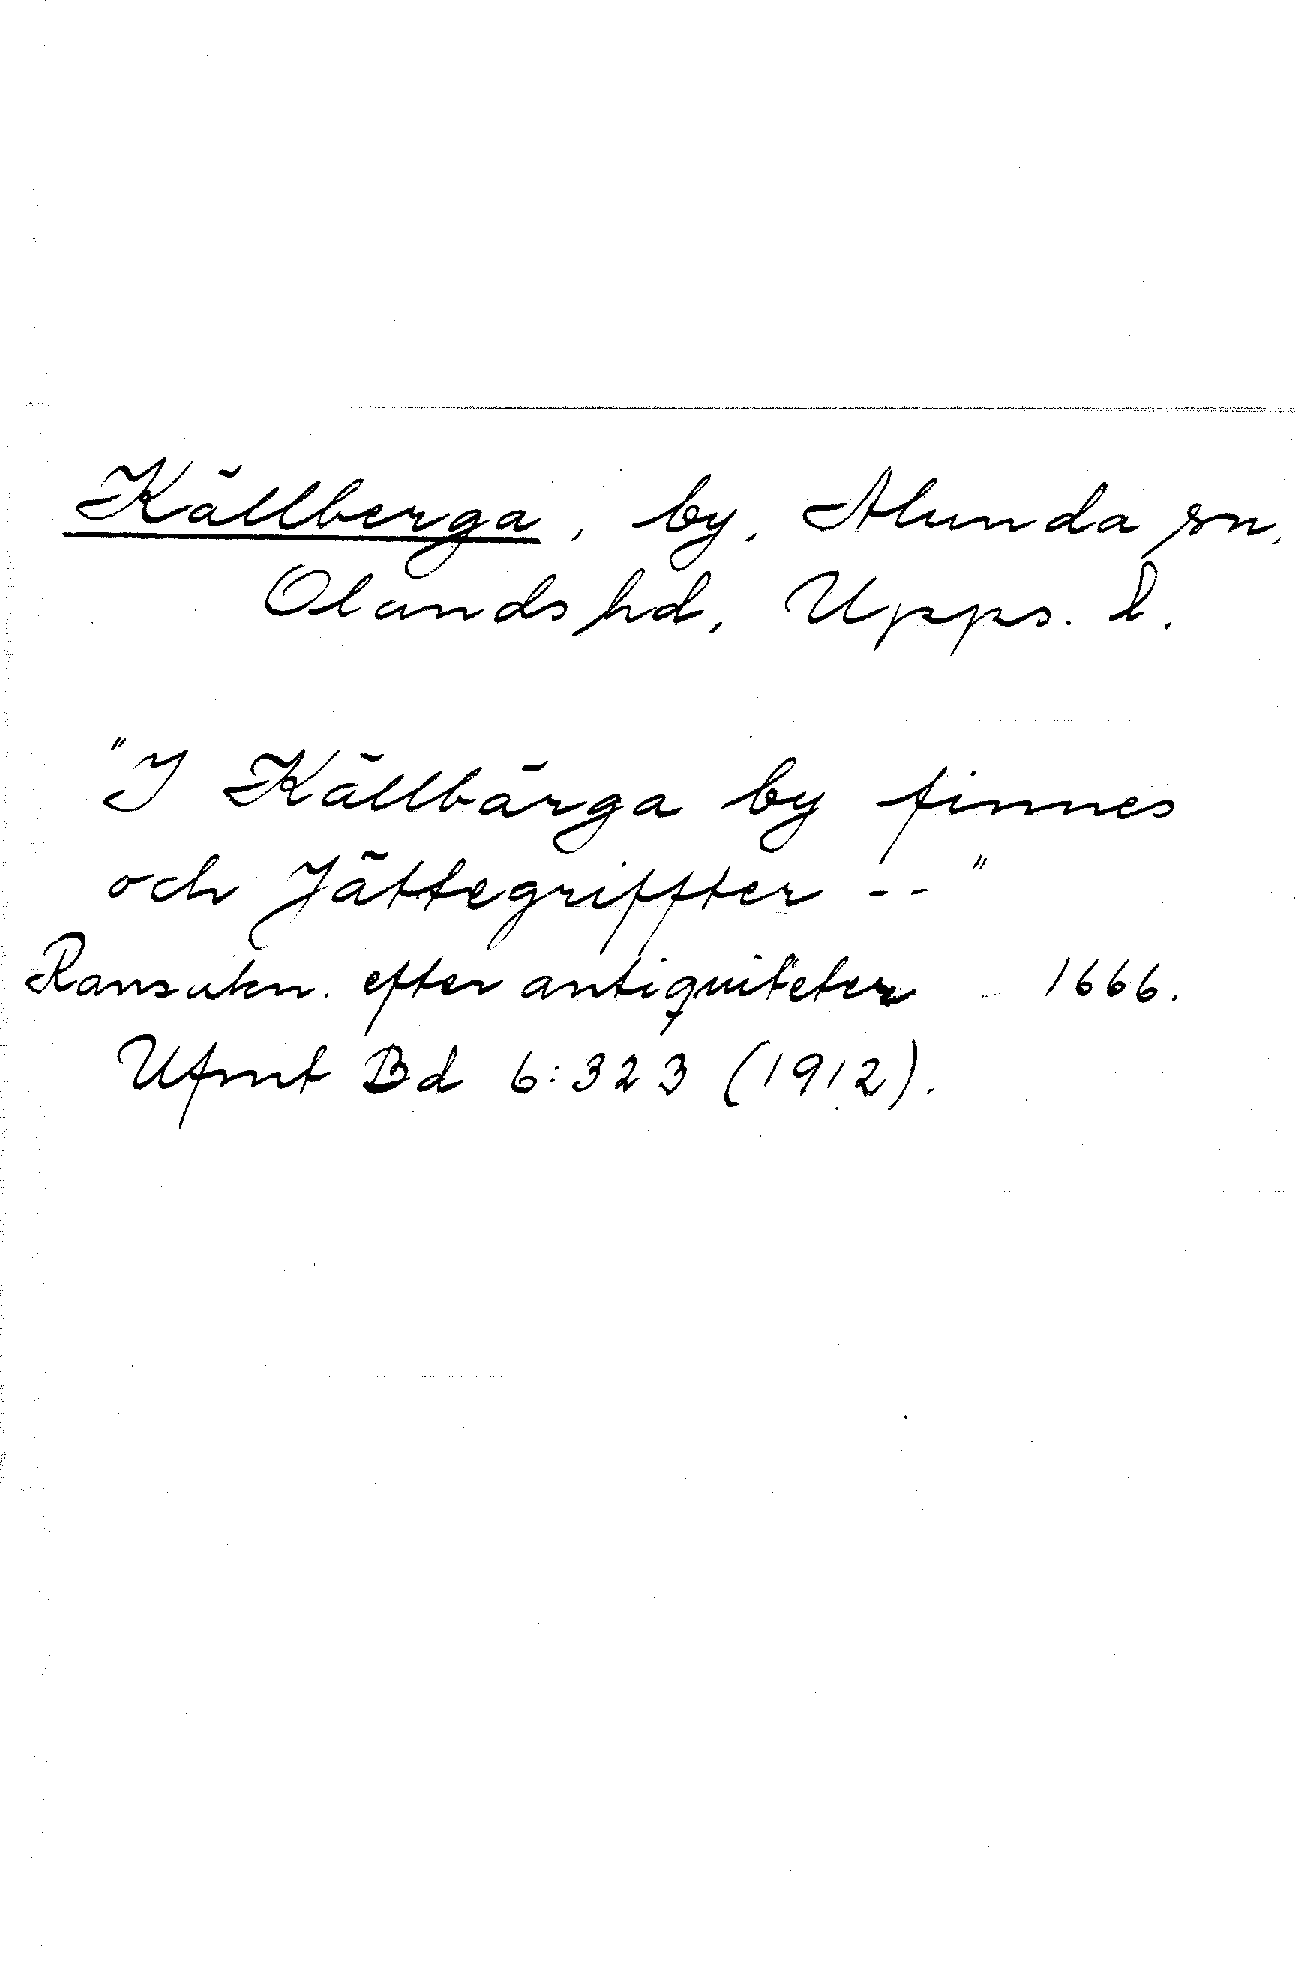 Källberga, by, Alunda sn,
Olands hd, Upps. l.
"I Källbärga by finnes
och Jättegriffter -- "
Ransakn. efter antiquiteter 1666.
Ufmt Bd 6:323 (1912).